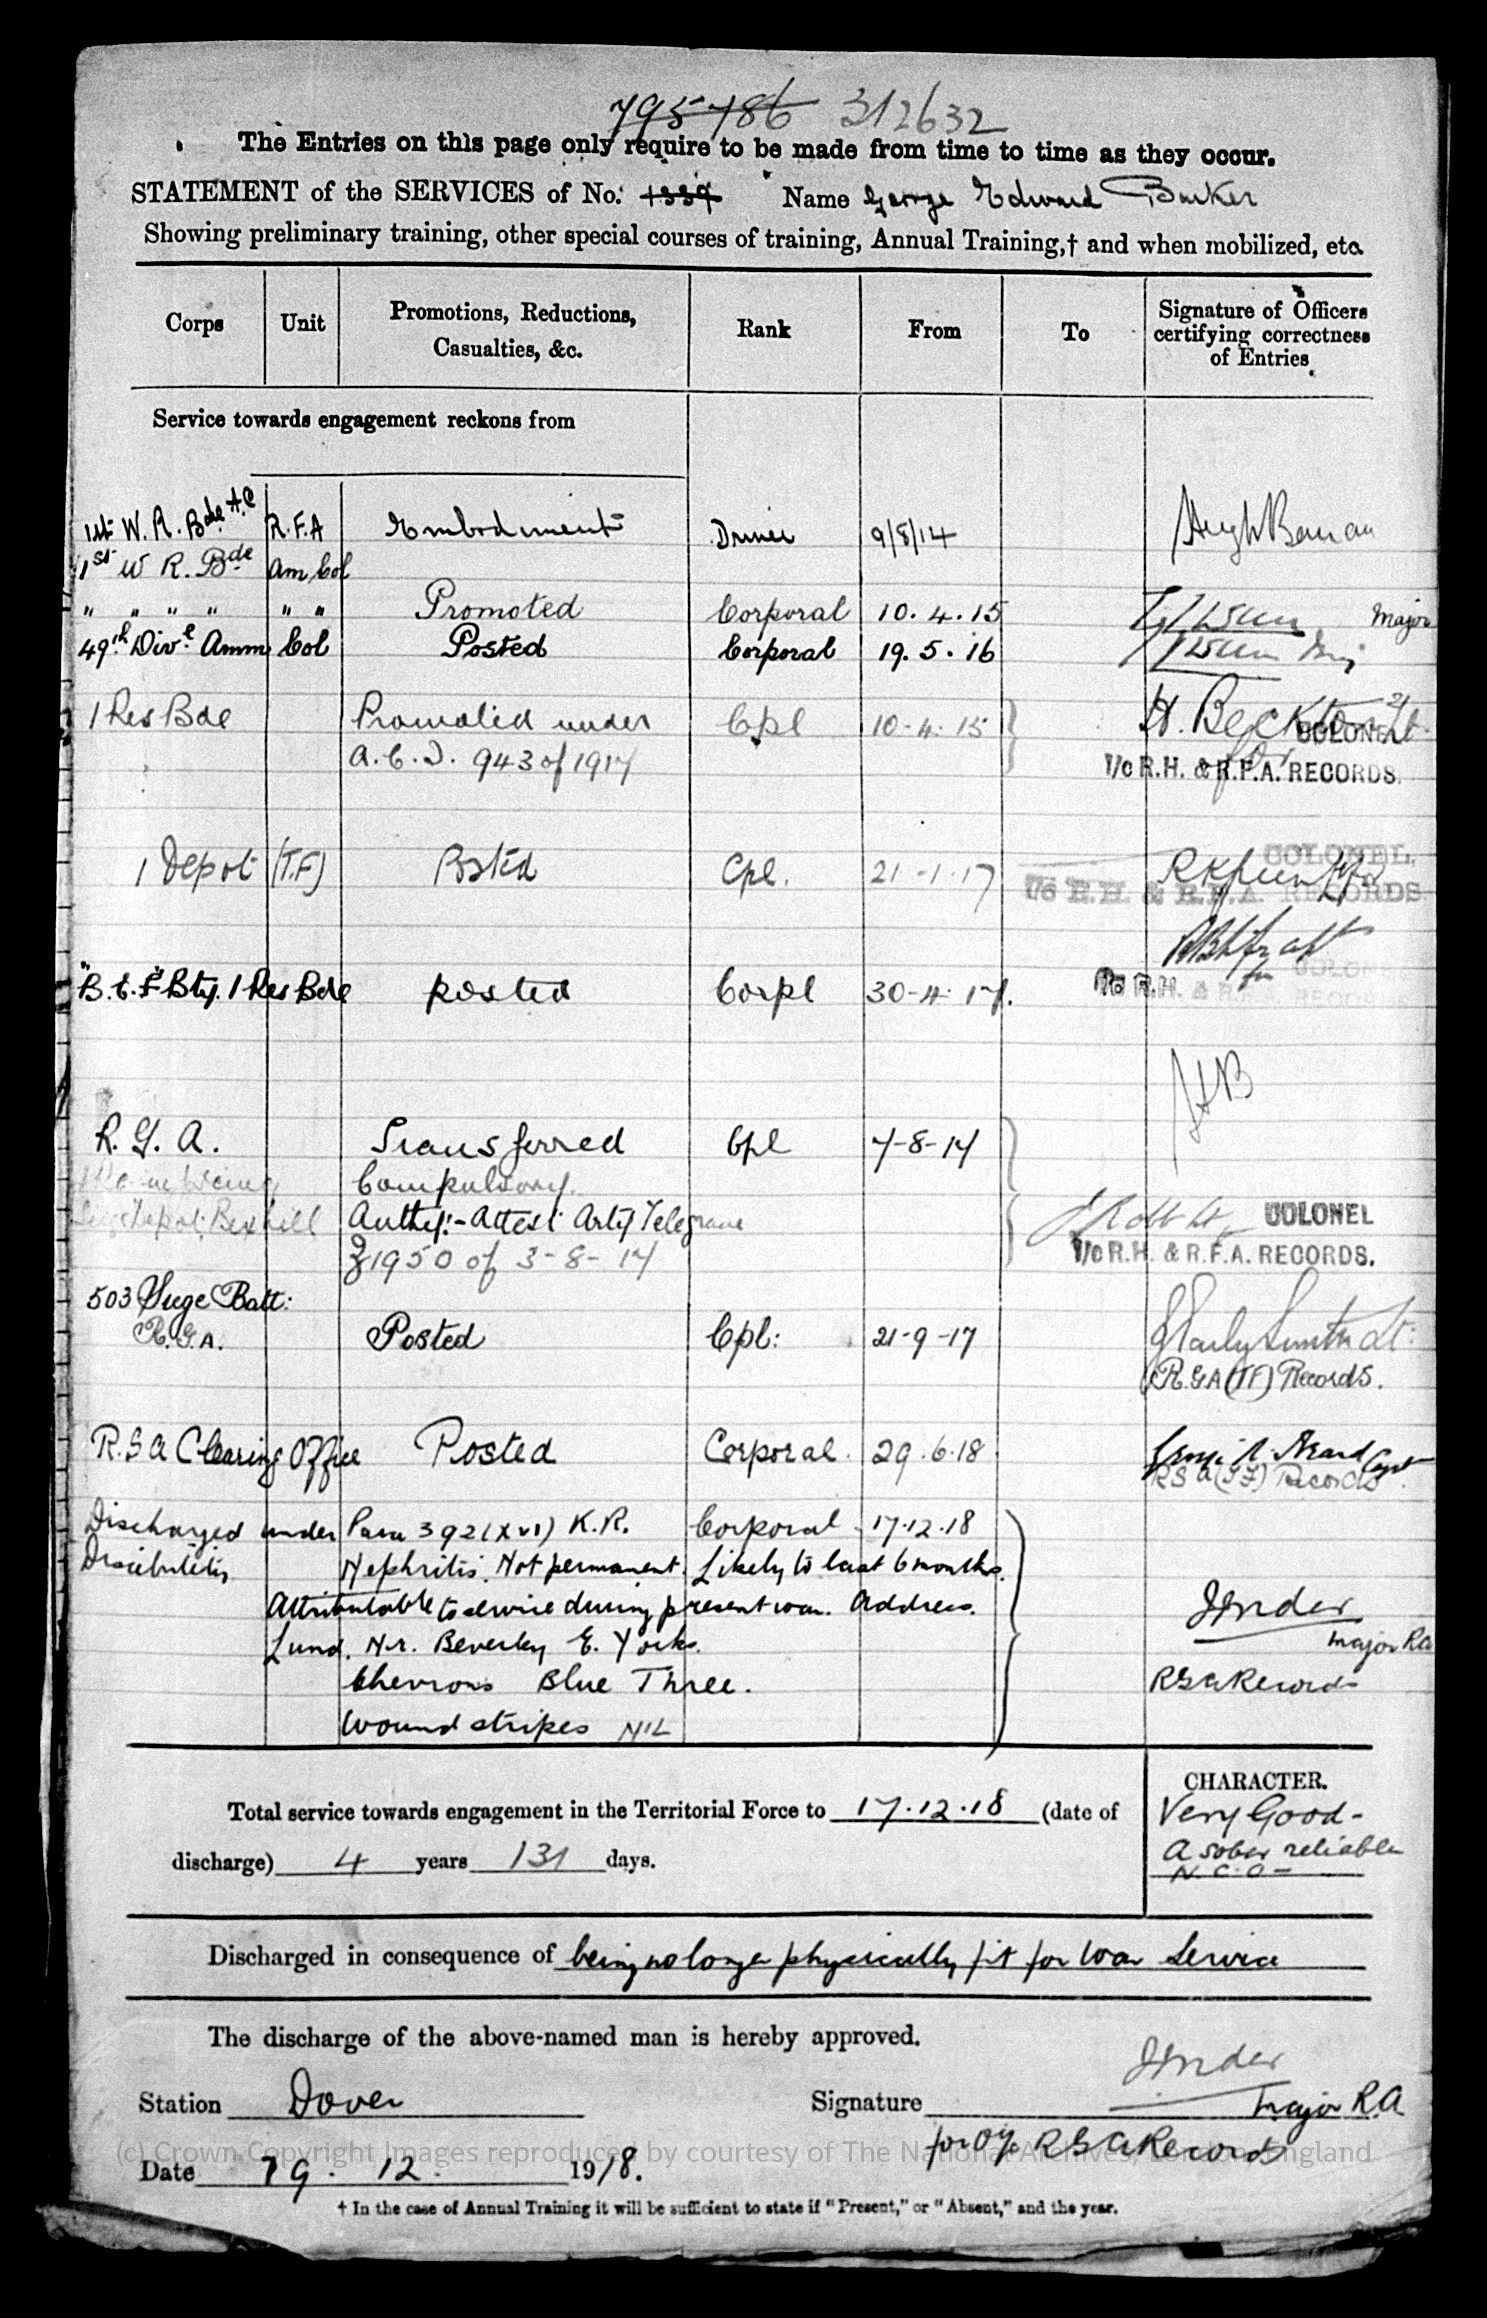 795786 312632
The Entries on this page only require to be made from time to time as they occur.
STATEMENT of the SERVICES of No. 1339 Name George Edward Barker
Showing preliminary training, other special courses of training, Annual Training,† and when mobilized, etc.
Corps Unit Promotions, Reductions, Casualties, &c. Rank From To Signature of Officers certifying correctness of Entries
Service towards engagement reckons from
1st W. R. Bde A.C R.F.A Embodiment Driver 9/8/14
1st W R. Bde Am Col
" " " " " " Promoted Corporal 10.4.15 Major
49th Divl Amm Col Posted Corporal 19.5.16
1 Res Bde Promoted under Cpl 10-4-15 H. Beckton Lt
COLONEL
A.C.I. 943 of 1917
I/c R.H. & R.F.A. RECORDS.
1 Depot (T.F) Posted Cpl. 21-1-17
COLONEL
I/c R.H. & R.F.A. RECORDS
"B.E.F" Bty. 1 Res Bde posted Corpl 30-4-17.
for COLONEL
I/c R.H. & R.F.A. RECORDS
HB
R. G. A. Transferred Cpl 7-8-17
Compulsory.
Depot; Bexhill Authy:- Attest Arty Telegram
COLONEL
1950 of 3-8-17
I/c R.H. & R.F.A. RECORDS.
503 Siege Batt:
R.G.A. Posted Cpl: 21-9-17 Smith Lt:
R.G.A (TF) Records.
R.G.A Clearing Office Posted Corporal. 29.6.18 Capt
RGA (TF) Records
Discharged under Para 392 (XVI) K.R. Corporal 17.12.18
Disabilities Nephritis. Not permanent. Likely to last 6 months.
Attributable to service during present war. Address.
Major RA
Lund. Nr. Beverley E. Yorks.
Chevrons Blue Three.
RGA Records
Wound stripes NIL
Total service towards engagement in the Territorial Force to 17.12.18 (date of
discharge) 4 years 131 days.
CHARACTER.
Very Good-
A sober reliable
N.C.O-
Discharged in consequence of being no longer physically fit for War Service
The discharge of the above-named man is hereby approved.
Station Dover Signature Major R.A
for O/c RGA Records
(c) Crown Copyright Images reproduced by courtesy of The National Archives, London England
Date 19. 12. 1918.
† In the case of Annual Training it will be sufficient to state if "Present," or "Absent," and the year.